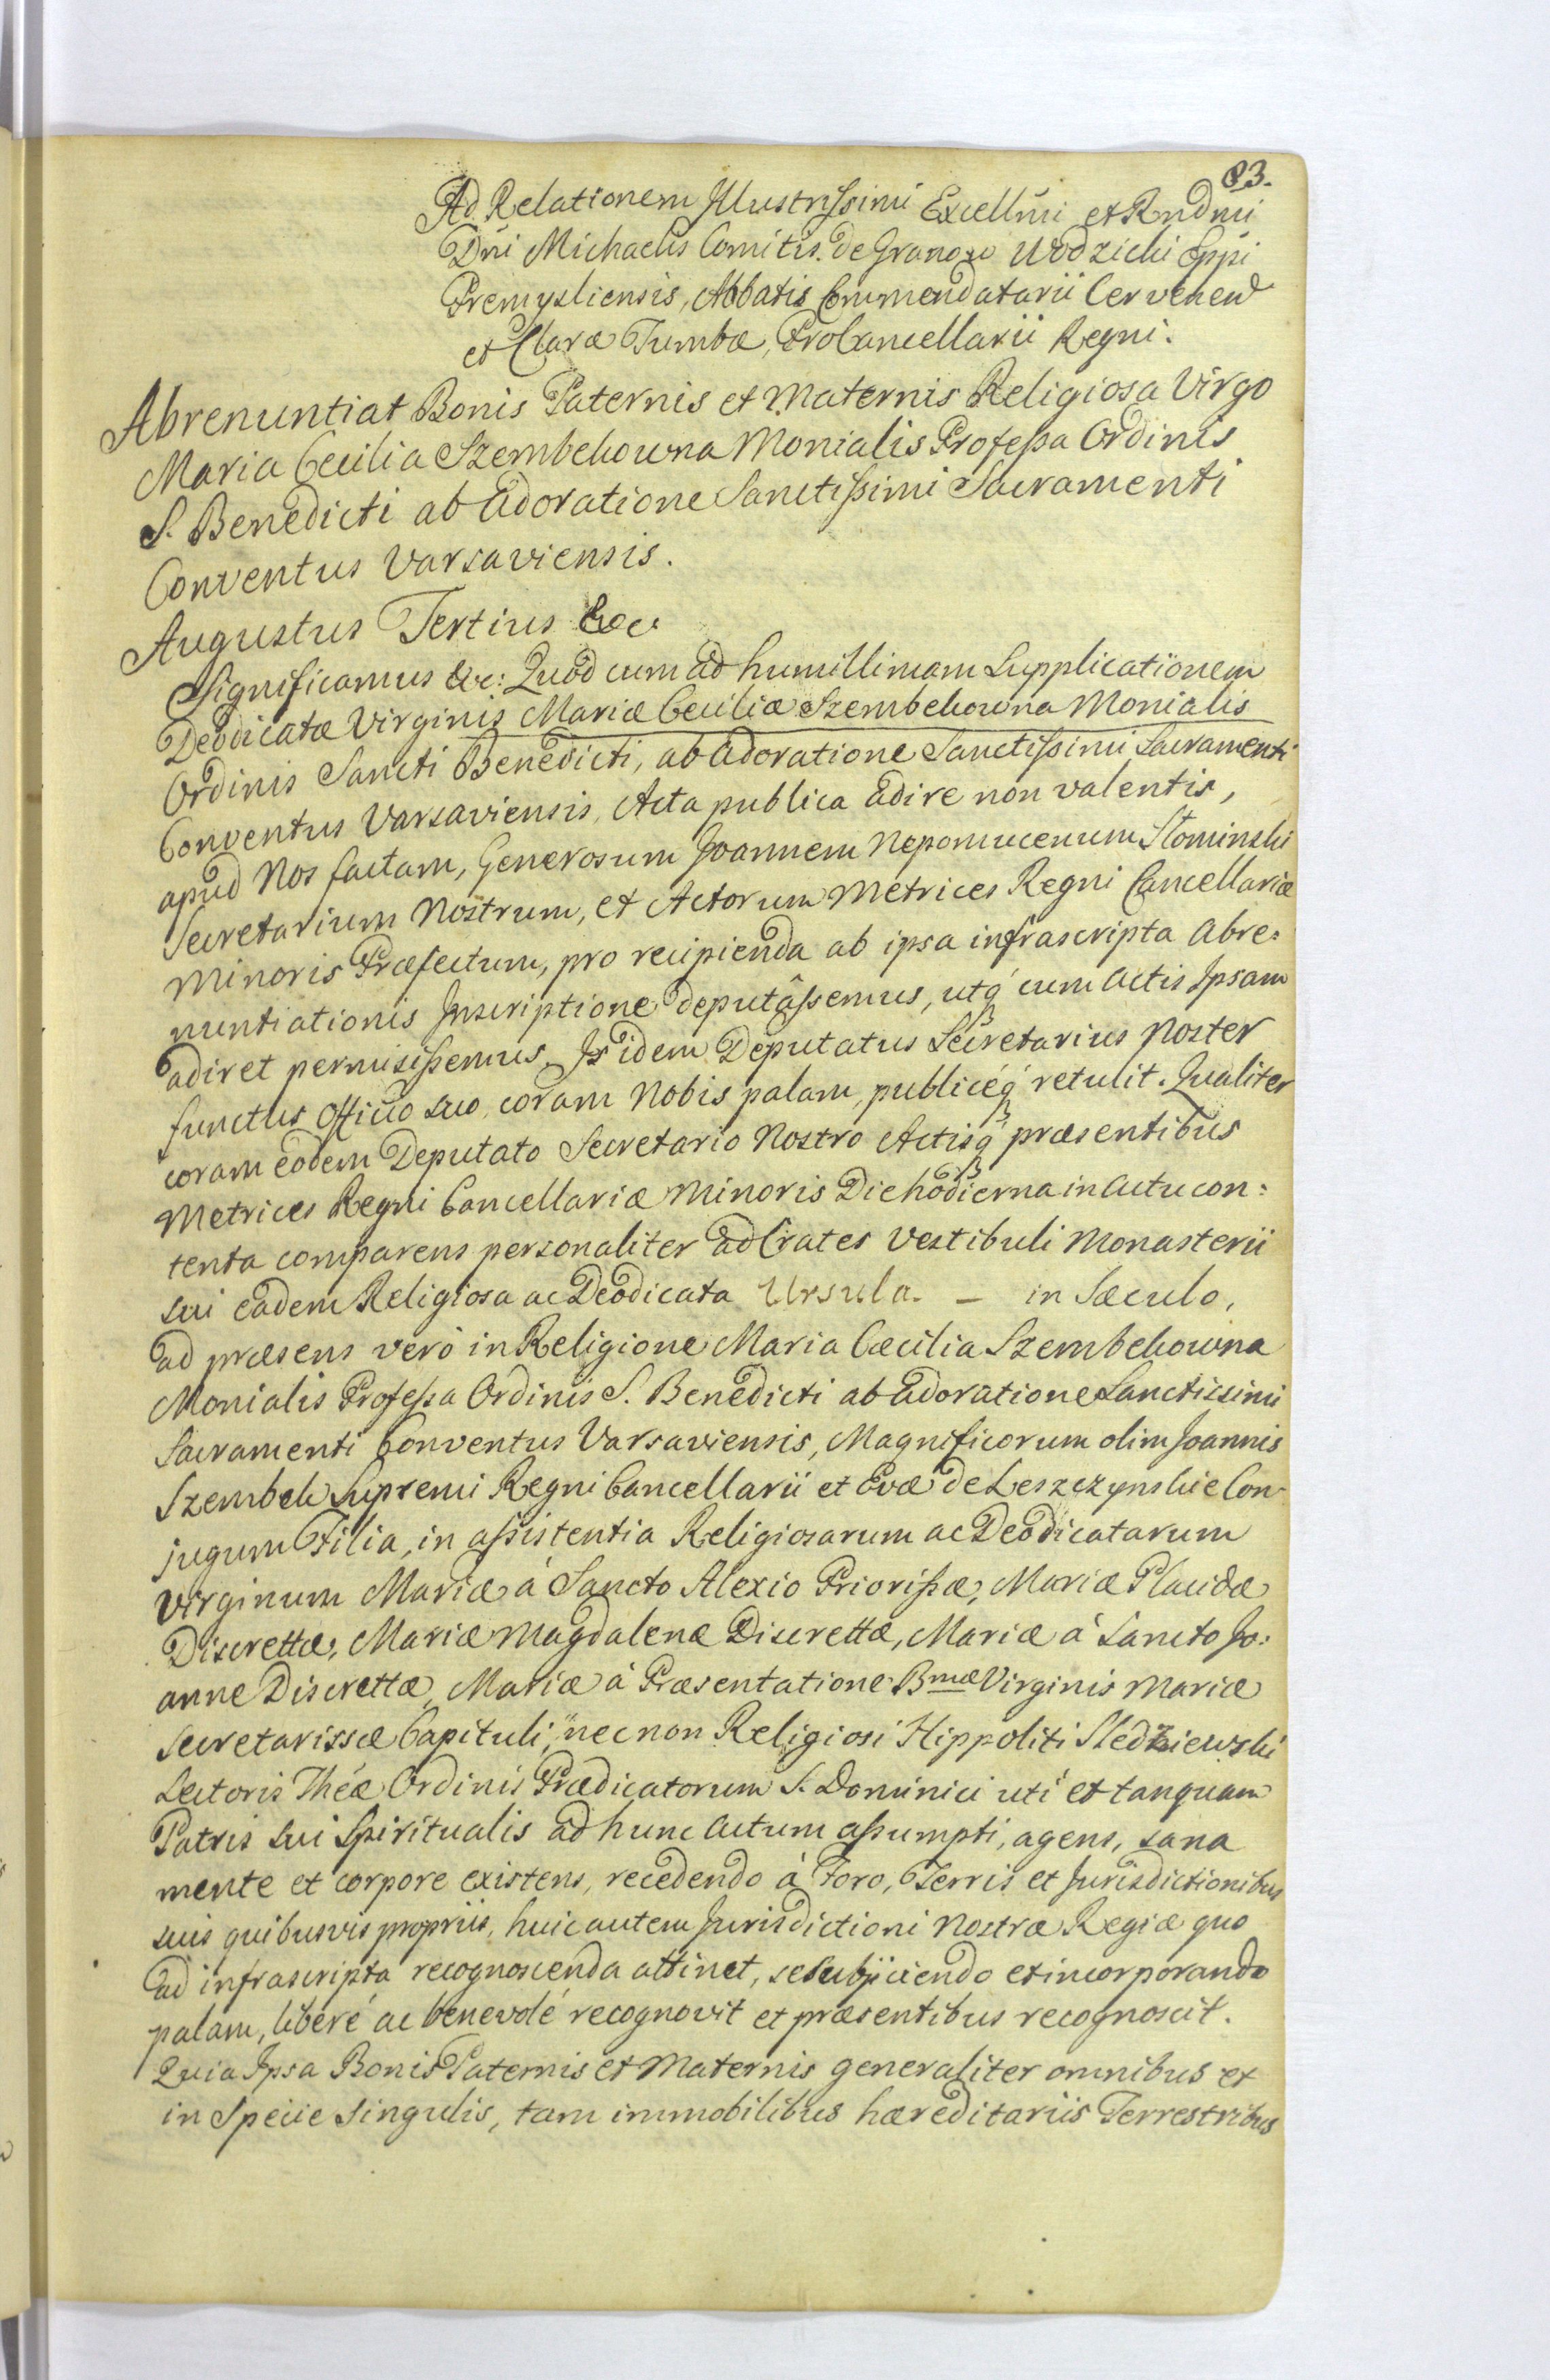 83.
Ad Relationem Illustrissimi Excellmi et Rndmi
Dni Michaelis Comitis de Granow Wodzicki Eppi
Premysliensis, Abbatis Commendatarii Cervenen
et Claræ Tumbæ, ProCancellarii Regni.
Abrenuntiat Bonis Paternis et Maternis Religiosa Virgo
Maria Cecilia Szembekowna Monialis Professa Ordinis
S. Benedicti ab Adoratione Sanctissimi Sacramenti
Conventus Varsaviensis.
Augustus Tertius &c
Significamus &c: Quod cum ad humillimam Supplicationem
Deodicatæ Virginis Mariæ Ceciliæ Szembekowna Monialis
Ordinis Sancti Benedicti, ab Adoratione Sanctissimi Sacramenti
Conventus Varsaviensis, Acta publica adire non valentis,
apud Nos factam, Generosum Joannem Nepomucenum Słominski
Secretarium Nostrum, et Actorum Metrices Regni Cancellariæ
Minoris Præfectum, pro recipienda ab ipsa infrascripta Abre:
nuntiationis Inscriptione deputâssemus, utq́ cum Actis Ipsam
adiret permisissemus, Is idem Deputatus Secretarius Noster
functus Officio suo, coram Nobis palam, publicéq́ retulit. Qualiter
coram eodem Deputato Secretario Nostro Actisq́ præsentibus
Metrices Regni Cancellariæ Minoris Die hodierna in Actu con:
tenta comparens personaliter ad Crates Vestibuli Monasterii
sui eadem Religiosa ac Deodicata Ursula. — in Sæculo,
ad præsens verò in Religione Maria Cæcilia Szembekowna
Monialis Professa Ordinis S. Benedicti ab Adoratione Sanctissimi
Sacramenti Conventus Varsaviensis, Magnificorum olim Joannis
Szembek Supremi Regni Cancellarii et Evæ de Leszczynskie Con-
jugum Filia, in assistentia Religiosarum ac Deodicatarum
Virginum Mariæ á Sancto Alexio Priorissæ, Mariæ Placidæ
Discrettæ, Mariæ Magdalenæ Discrettæ, Mariæ á Sancto Jo:
anne Discrettæ, Mariæ á Præsentatione Bmæ Virginis Mariæ
Secretarissæ Capituli, nec non Religiosi Hippoliti Sledziewski
Lectoris Theæ Ordinis Prædicatorum S. Dominici uti et tanquam
Patris sui Spiritualis ad hunc Actum assumpti, agens, sana
mente et corpore existens, recedendo á Foro, Terris et Jurisdictionibus
suis quibusvis propriis, huic autem Jurisdictioni Nostræ Regiæ quo
ad infrascripta recognoscenda attinet, se subjiciendo et incorporando
palam, liberé ac benevolé recognovit et præsentibus recognoscit.
Quia Ipsa Bonis Paternis et Maternis generaliter omnibus et
in Specie singulis, tam immobilibus hæreditariis Terrestribus